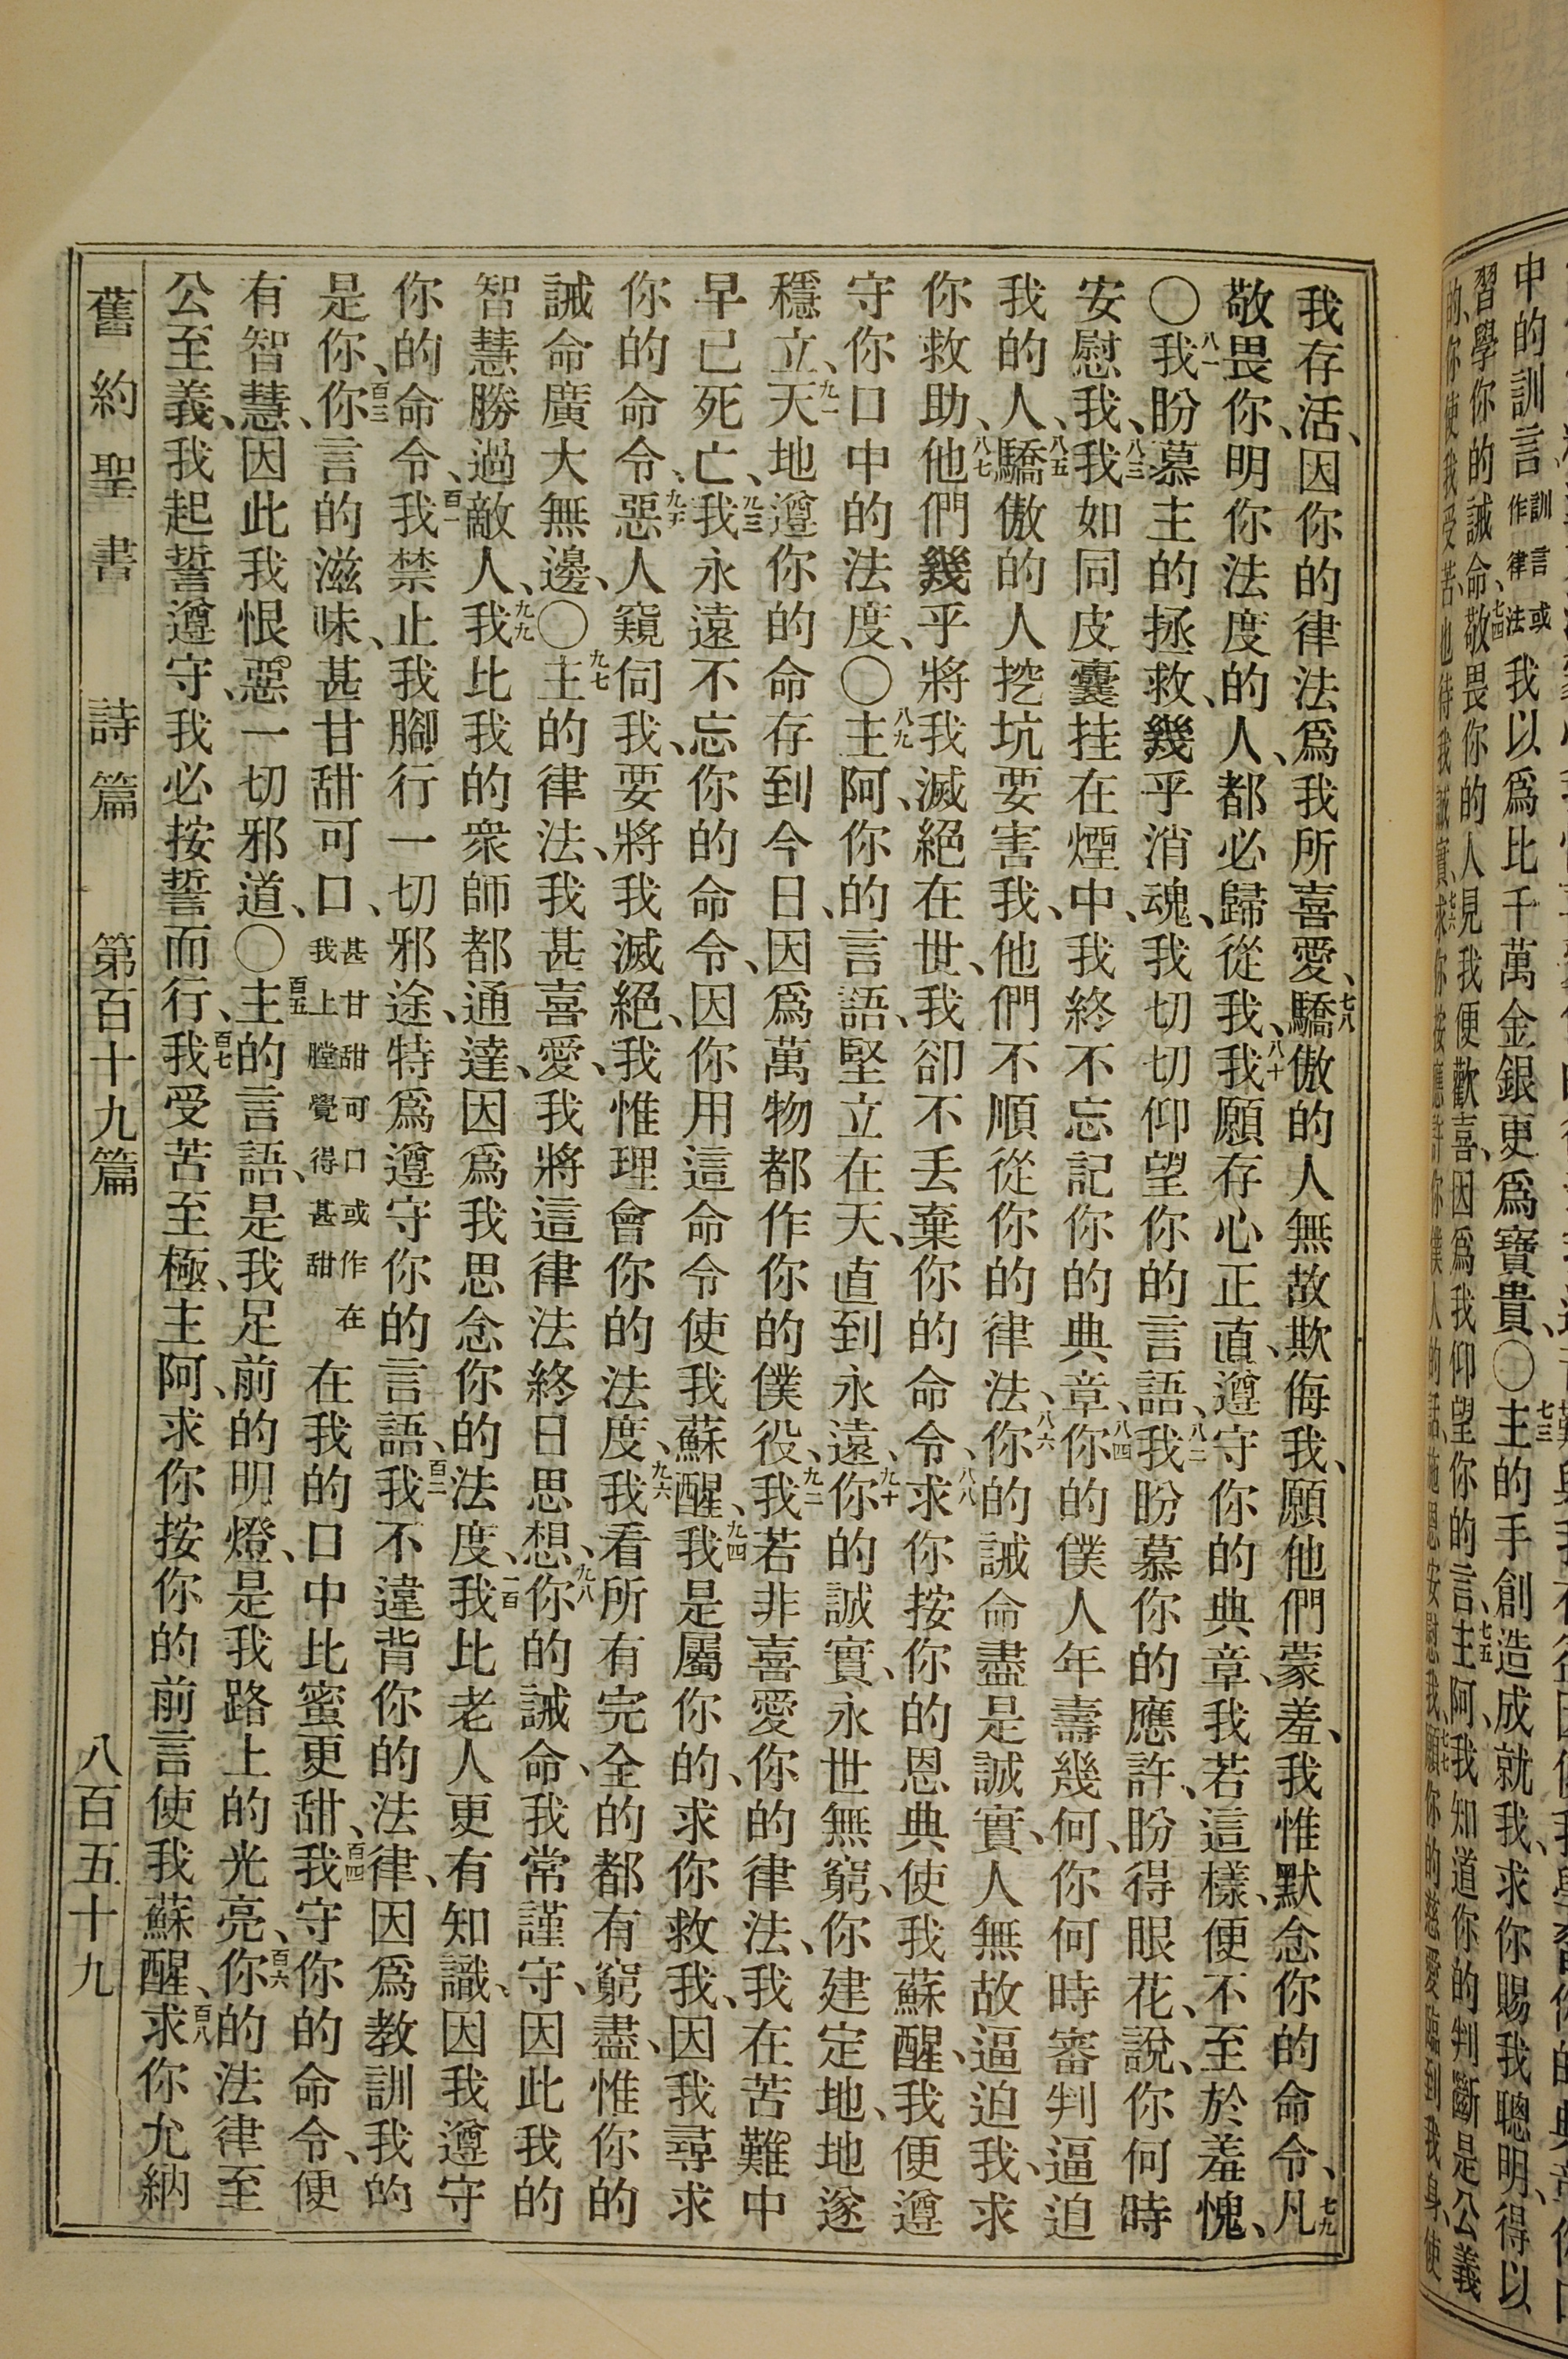 我存活、因你的律法爲我所喜愛、七八驕傲的人無故欺侮我、願他們蒙羞、我惟默念你的命令、七九凡
敬畏你、明你法度的人、都必歸從我、八十我願存心正直、遵守你的典章、我若這樣、便不至於羞愧、
〇八一我盼慕主的拯救、幾乎消魂、我切切仰望你的言語、八二我盼慕你的應許、盼得眼花、說、你何時
安慰我、八三我如同皮囊挂在煙中、我終不忘記你的典章、八四你的僕人年壽幾何、你何時審判逼迫
我的人、八五驕傲的人挖坑要害我、他們不順從你的律法、八六你的誡命盡是誠實、人無故逼迫我、求
你救助、八七他們幾乎將我滅絕在世、我卻不丟棄你的命令、八八求你按你的恩典使我蘇醒、我便遵
守你口中的法度、〇八九主阿、你的言語、堅立在天、直到永遠、九十你的誠實、永世無窮、你建定地、地遂
穩立、九一天地遵你的命存到今日、因爲萬物都作你的僕役、九二我若非喜愛你的律法、我在苦難中
早已死亡、九三我永遠不忘你的命令、因你用這命令使我蘇醒、九四我是屬你的、求你救我、因我尋求
你的命令、九五惡人窺伺我、要將我滅絕、我惟理會你的法度、九六我看所有完全的都有窮盡、惟你的
誡命廣大無邊、〇九七主的律法、我甚喜愛、我將這律法終日思想、九八你的誡命、我常謹守、因此我的
智慧勝過敵人、九九我比我的衆師都通達、因爲我思念你的法度、一百我比老人更有知識、因我遵守
你的命令、百一我禁止我腳行一切邪途、特爲遵守你的言語、百二我不違背你的法律、因爲教訓我的
是你、百三你言的滋味、甚甘甜可口、甚甘甜可口或作在我上膛覺得甚甜在我的口中比蜜更甜、百四我守你的命令、便
有智慧、因此我恨惡一切邪道、〇百五主的言語、是我足前的明燈、是我路上的光亮、百六你的法律至
公至義、我起誓遵守、我必按誓而行、百七我受苦至極、主阿、求你按你的前言使我蘇醒、百八求你允納
舊約聖書 詩篇 第百十九篇 八百五十九
中的訓言訓言或作律法我以爲比千萬金銀更爲寶貴、〇七三主的手創造成就我、求你賜我聰明、得以
習學你的誡命、七四敬畏你的人見我便歡喜、因爲我仰望你的言、七五主阿、我知道你的判斷是公義